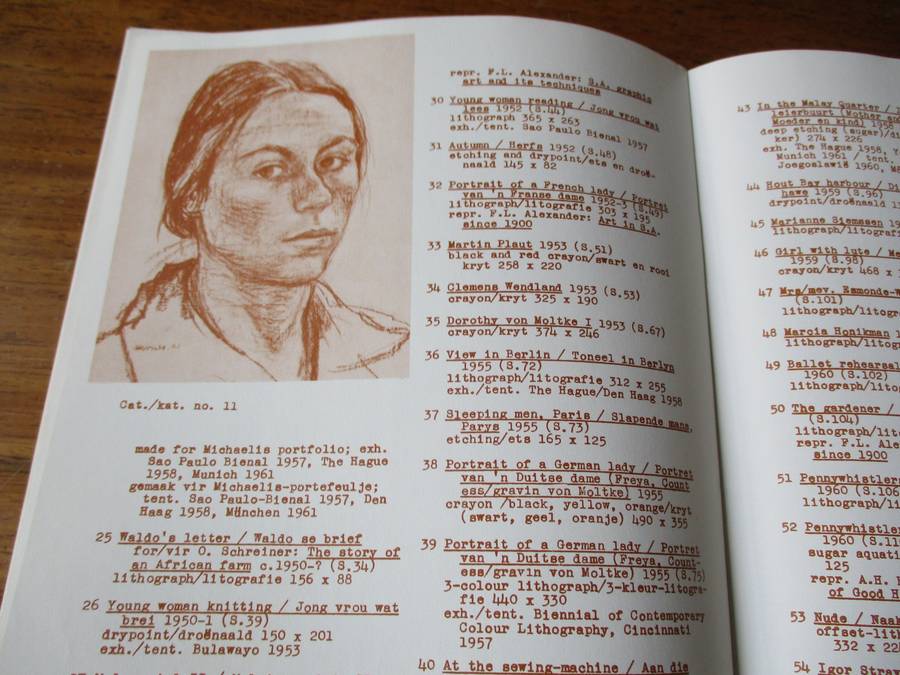 Cat./kat. no. 11
made for Michaelis portfolio; exh.
Sao Paulo Bienal 1957, The Hague
1958, Munich 1961
gemaak vir Michaelis-portefeulje;
tent. Sao Paulo-Bienal 1957, Den
Haag 1958, München 1961
25 Waldo's letter / Waldo se brief
for/vir O. Schreiner: The story of
an African farm c.1950-? (S.34)
lithograph/litografie 156 x 88
26 Young woman knitting / Jong vrou wat
brei 1950-1 (S.39)
drypoint/droënaald 150 x 201
exh./tent. Bulawayo 1953
repr. F.L. Alexander: S.A. graphic
art and its techniques
30 Young woman reading / Jong vrou wat
lees 1952 (S.44)
lithograph 365 x 263
exh./tent. Sao Paulo Bienal 1957
31 Autumn / Herfs 1952 (S.48)
etching and drypoint/ets en droë-
naald 145 x 82
32 Portrait of a French lady / Portret
van 'n Franse dame 1952-3 (S.49)
lithograph/litografie 303 x 195
repr. F.L. Alexander: Art in S.A.
since 1900
33 Martin Plaut 1953 (S.51)
black and red crayon/swart en rooi
kryt 258 x 220
34 Clemens Wendland 1953 (S.53)
crayon/kryt 325 x 190
35 Dorothy von Moltke I 1953 (S.67)
crayon/kryt 374 x 246
36 View in Berlin / Toneel in Berlyn
1955 (S.72)
lithograph/litografie 312 x 255
exh./tent. The Hague/Den Haag 1958
37 Sleeping men, Paris / Slapende mans,
Parys 1955 (S.73)
etching/ets 165 x 125
38 Portrait of a German lady / Portret
van 'n Duitse dame (Freya, Count
ess/gravin von Moltke) 1955
crayon /black, yellow, orange/kryt
(swart, geel, oranje) 490 x 355
39 Portrait of a German lady / Portret
van 'n Duitse dame (Freya, Count-
ess/gravin von Moltke) 1955 (S.75)
3-colour lithograph/3-kleur-litogra-
fie 440 x 330
exh./tent. Biennial of Contemporary
Colour Lithography, Cincinnati
1957
40 At the sewing-machine / Aan die
43 In the Malay Quarter /
leierbuurt (Mother and
Moeder en kind) 1958
deep etching (sugar)/di
ker) 274 x 226
exh. The Hague 1958,
Munich 1961 / tent.
Joegoslawië 1960,
44 Hout Bay harbour /
hawe 1959 (S.96)
drypoint/droënaald
45 Marianne Siemssen
lithograph/litogra
46 Girl with lute /
1959 (S.98)
crayon/kryt 468 x
47 Mrs/mev. Esmonde-
(S.101)
lithograph/litogr
48 Marcia Honikman
lithograph/litogr
49 Ballet rehearsal
1960 (S.102)
lithograph/litog
50 The gardener /
(S.104)
lithograph/lit
repr. F.L. Ale
since 1900
51 Pennywhistlers
1960 (S.106
lithograph/lit
52 Pennywhistler
1960 (S.11
sugar aquati
125
repr. A.H.
of Good H
53 Nude / Naak
offset-lith
332 x 22
54 Igor Stra